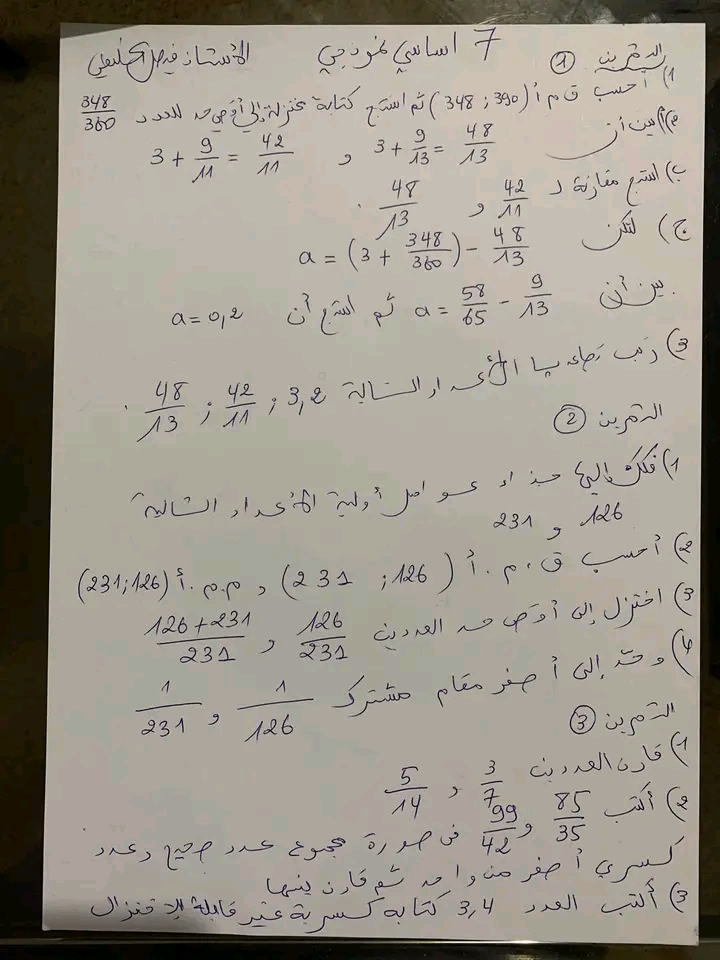 7 أساسي نموذجي الأستاذ فيصل
التمرين ①
1) أحسب ق م أ (390 ; 348) ثم استنتج كتابة مختزلة إلى أقصى حد للعدد 348/360
2) أ) بين أن 3 + 9/13 = 48/13 و 3 + 9/11 = 42/11
ب) استنتج مقارنة لـ 42/11 و 48/13 .
ج) لتكن a = (3 + 348/360) - 48/13
بين أن a = 58/65 - 9/13 ثم استنتج أن a = 0,2
3) رتب تصاعديا الأعداد التالية 3,2 ; 42/11 ; 48/13 .
التمرين ②
1) فكك إلى جذاء عوامل أولية الأعداد التالية
126 و 231
2) أحسب ق . م . أ (126 ; 231) و م.م.أ (126;231)
3) اختزل إلى أقصى حد العددين 126/231 و 126+231/231
4) وحد إلى أصغر مقام مشترك 1/126 و 1/231
التمرين ③
1) قارن العددين 3/7 و 5/14
2) أكتب 85/35 و 99/42 في صورة مجموع عدد صحيح وعدد
كسري أصغر من واحد ثم قارن بينها
3) أكتب العدد 3,4 كتابة كسرية غير قابلة للإختزال